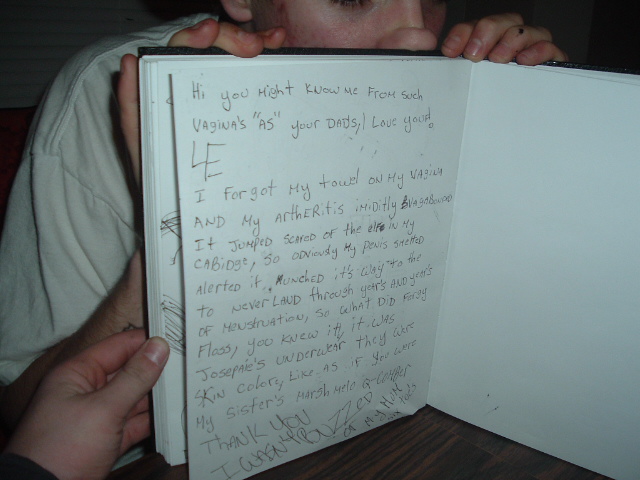 Hi you Might KNOW ME FROM SUCH
VAGINA'S "AS" your DADS, I Love you!
I Forgot My towel ON MY VAGINA
AND My ArthERitis iMiDitly VAGABONDED
It JUMPED SCARED OF the elf IN My
CABiDge, SO OBViously My Penis
Alerted it, MUNCHED it's WAY to the
to NeverLAND through year's AND year's
OF MeNStruAtion, SO WHAT DiD Forgy
Floss, you KNEW it, it WAS
Josepaie's UNDerweAr they were
SKiN Color, Like AS if you were
My Sister's MArshMelo
THANK YOU
I WASN'T